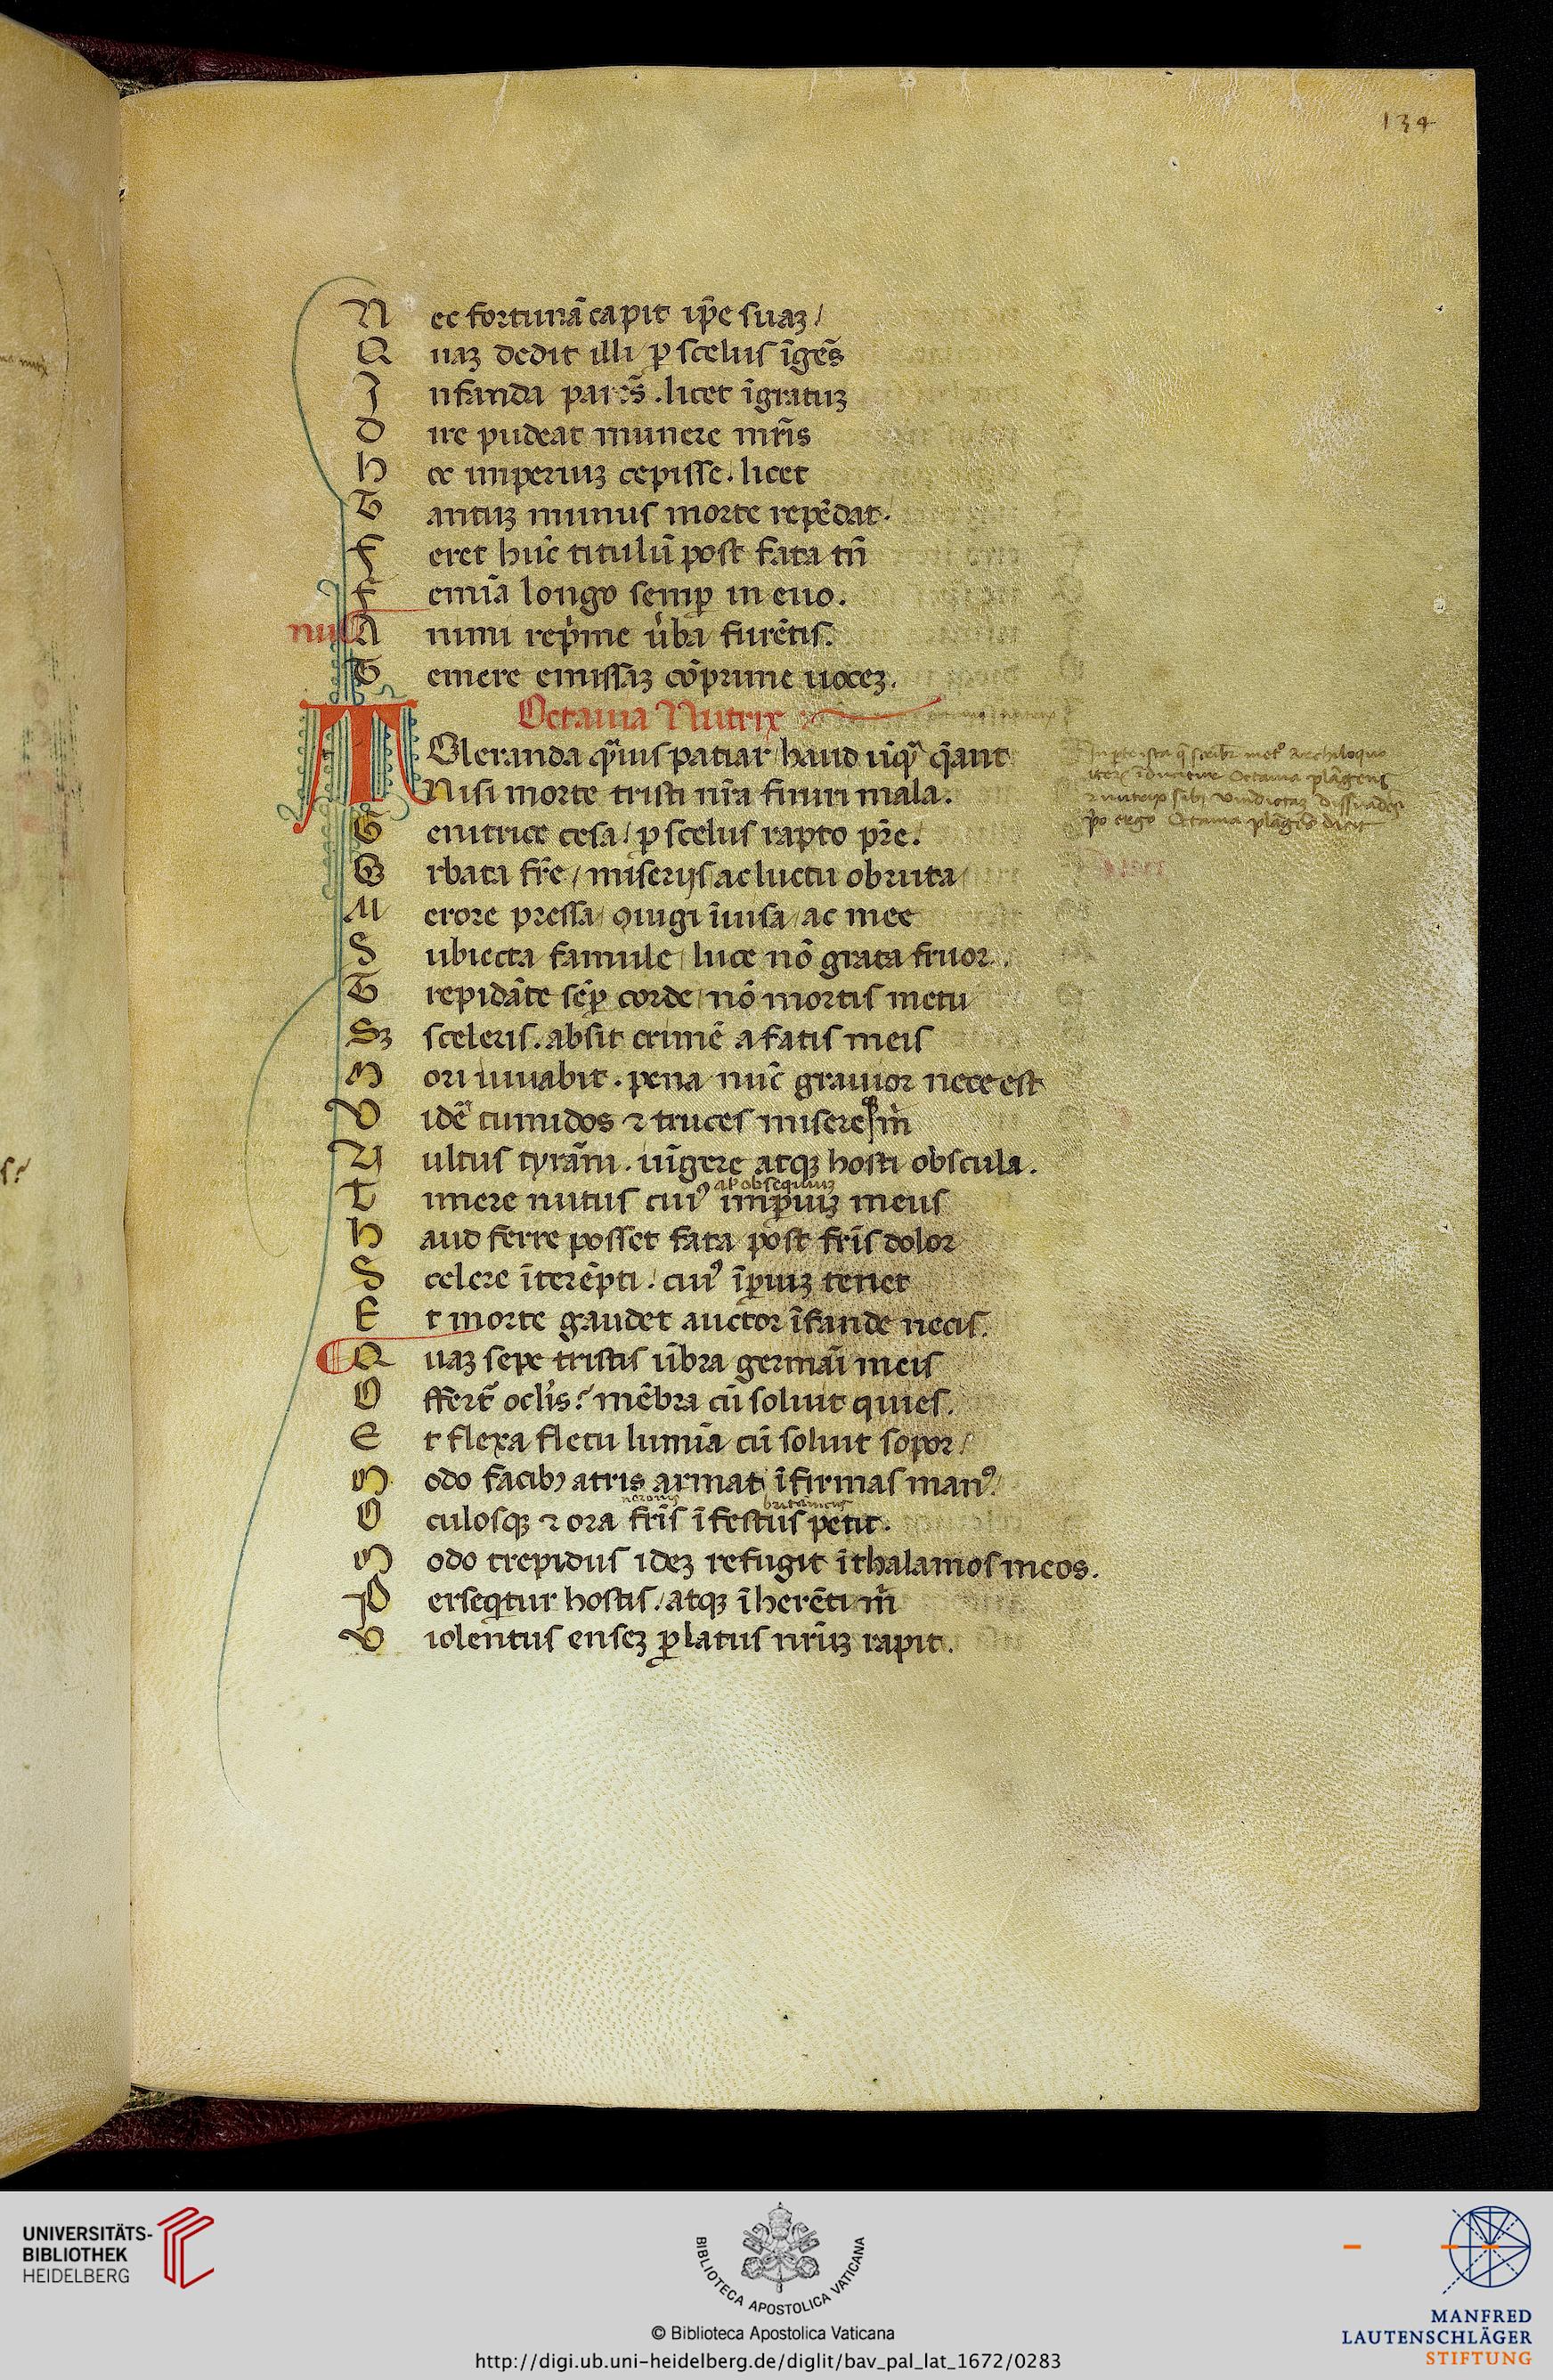 134
Nec fortunā capit ip̄e suaꝫ /
Quaꝫ dedit illi ꝑ scelus īgēs
Infanda parēs . licet īgratuꝫ
Dire pudeat munere mr̄is
Hoc imperiuꝫ cepisse . licet
Tantuꝫ munus morte repēdat .
Feret hūc titulū post fata tn̄
Femīa longo semꝑ in euo .
nut Animi rep̄me ūba furētis .
Temere emissaꝫ cōprime uoceꝫ .
Octauia Nutrix
TOleranda ꝙ̄uis patiar haud ūꝙ̄ q̄ant
Nisi morte tristi nr̄a finiri mala .
Genitrice cesa / ꝑ scelus rapto pr̄e .
Orbata fr̄e / miseriis ac luctu obruta
Merore pressa / ꝯiugi īuisa / ac mee
Subiecta famule / luce nō grata fruor .
Trepidāte sēꝑ corde / nō mortis metu
Sꝫ sceleris . absit crimē a fatis meis
Mori iuuabit . pena nūc grauior nece est
Vidē tumidos ⁊ truces misere m̄
Vultus tyrāni . iūgere atqꝫ hosti obscula .
Timere nutus cuiꝰ impiuꝫ meus
al obsequiuꝫ
Haud ferre posset fata post fr̄is dolor
Scelere īterēpti . cuiꝰ īꝑiuꝫ tenet
Et morte gaudet auctor īfande necis .
Quaꝫ sepe tristis ūbra germāi meis
Offert̄ ocl̄is ? mēbra cū soluit quies .
Et flexa fletu lumīa cū soluit sopor /
Modo facibꝫ atris armat īfirmas manꝰ .
neronis britanicus
Oculosqꝫ ⁊ ora fr̄is īfestus petit .
Modo trepidus ideꝫ refugit ī thalamos meos .
Perseqtur hostis / atqꝫ īherēti m̄
Violentus enseꝫ ꝑ latus nr̄uꝫ rapit .
octauia plāgens
⁊ nutrix sibi vindictaꝫ dissuadēs
p̄o ergo Octauia plāgēs dicit
UNIVERSITÄTS-
BIBLIOTHEK
HEIDELBERG
BIBLIOTECA APOSTOLICA VATICANA
© Biblioteca Apostolica Vaticana
http://digi.ub.uni-heidelberg.de/diglit/bav_pal_lat_1672/0283
MANFRED
LAUTENSCHLÄGER
STIFTUNG